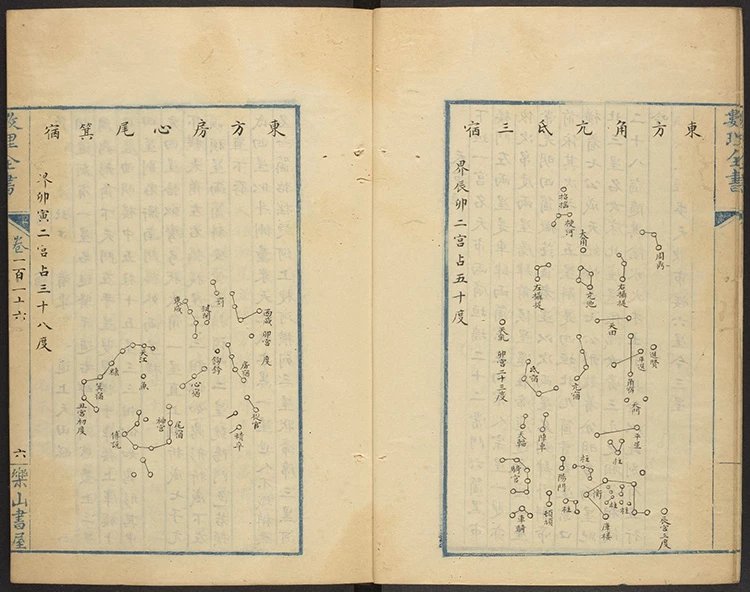 數理全書
東方角亢氐三宿
界辰卯二宮占五十度
周鼎
右攝提
大角
招搖
梗河
亢池
左攝提
天田
進賢
平道
角宿
天門
平星
亢宿
氐宿
天乳
卯宮二十三度
天輻
陣車
騎官
車騎
陽門
頓頑
柱
柱
衡
柱
柱
庫樓
柱
辰宮三度
東方房心尾箕宿
界卯寅二宮占三十八度
西咸
卯宮
度
罰
鍵閉
東咸
鈎鈐
房宿
心宿
從官
積卒
天江
魚
糠
箕宿
丑宮初度
傅說
神宮
尾宿
數理全書
卷一百一十六
六
樂山書屋